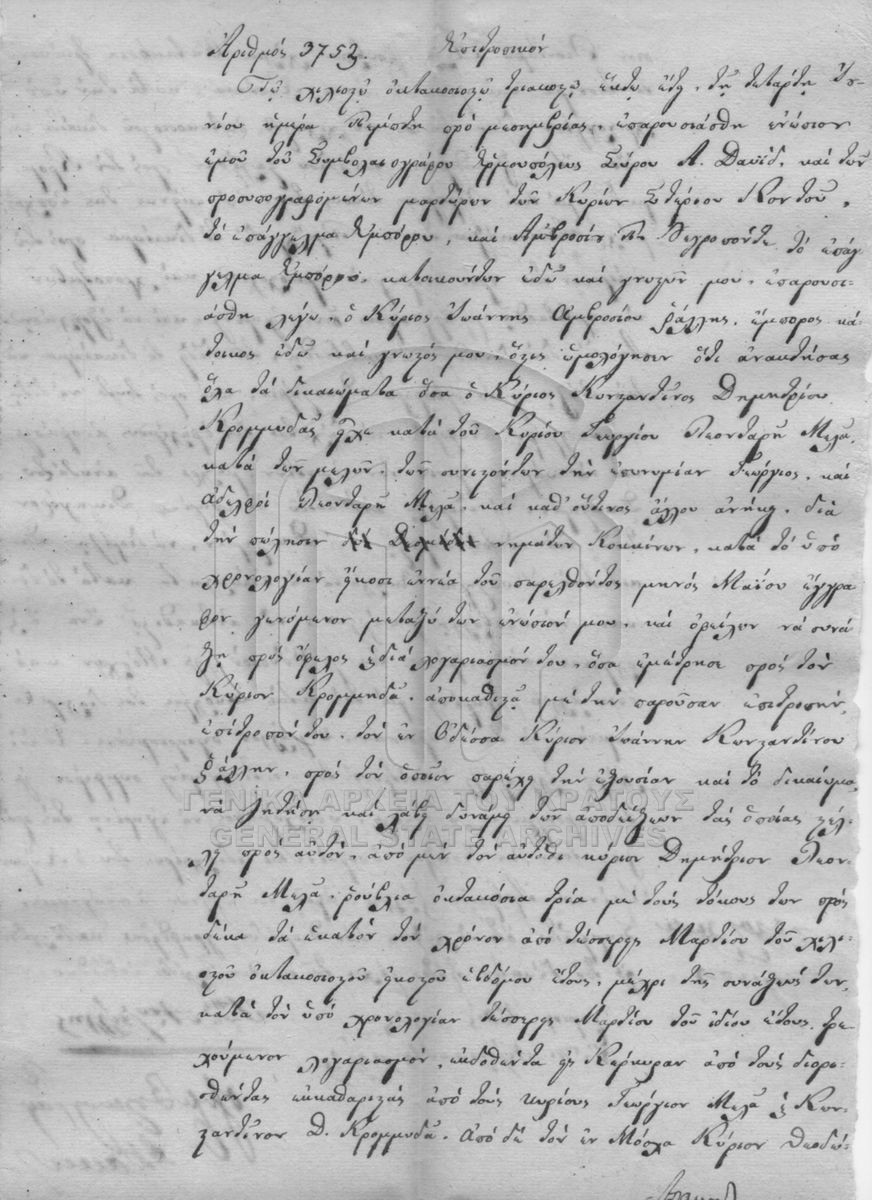 Αριθμός 3753. Επιτροπικόν
Τῷ χιλιοςῷ ὀκτακοσιοςῷ τριακοςῷ ἕκτῳ ἔτει, τῇ τετάρτῃ Ἰου-
νίου ἡμέρᾳ Πέμπτῃ πρό μεσημβρίας, ἐπαρουσιάσθη ἐνώπιον
ἐμοῦ τοῦ Συμβολαιογράφου Ἑρμουπόλεως Σύρου Α. David, καί τῶν
προσυπογραφομένων μαρτύρων τῶν Κυρίων Στέργιου Κοντοῦ,
τό ἐπάγγελμα Ἐμπόρου, καί Ἀμβροσίου Νεγροπόντε τό ἐπάγ-
γελμα Ἐμπόρου, κατοικούντων ἐδῶ καί γνωςῶν μου, ἐπαρουσι-
άσθη λέγω, ὁ Κύριος Ἰωάννης Αμβροσίου Ράλλης, ἔμπορος κά-
τοικος ἐδῶ καί γνωςός μου, ὅςις ὡμολόγησεν ὅτι ἀνακτήσας
ὅλα τά δικαιώματα ὅσα ὁ Κύριος Κωνςαντῖνος Δημητρίου
Κρομμυδας εἶχε κατά τοῦ Κυρίου Γεωργίου Λεονταρῆ Μελᾶ,
κατά τῶν μελῶν, τῶν συνιςόντων τήν ἐπωνυμίαν Γεώργιος, καί
ἀδελφοί Λεονταρῆ Μελᾶ, καί καθ' οὗτινος ἄλλου ἀνήκει, διά
τήν πώλησιν νημάτων Κοκκίνων, κατά τό ὑπό
χρονολογίαν εἴκοσι ἐννέα τοῦ παρελθόντος μηνός Μαΐου ἔγγρα
φον γενόμενον μεταξύ των ἐνώπιόν μου, καί ὀφείλων νά συνά
ξῃ πρός ὄφελος ἰδιά λογαριασμόν του, ὅσα ἐμέτρησε πρός τόν
Κύριον Κρομμηδᾶ, ἀποκαθιςᾷ μέ τήν παροῦσαν ἐπιτροπήν,
ἐπίτροπόν του, τόν ἐν Οδέσσα Κύριον Ἰωάννην Κωνςαντίνου
Ράλλην, πρός τόν ὁποῖον παρέχει τήν ἐξουσίαν καί τό δικαίωμα,
νά ζητήσῃ καί λάβῃ δυνάμει των ἀποδείξεων τάς ὁποίας ςέλ-
λει πρός αὐτόν, ἀπό μέν τόν αὐτόθι κύριον Δημήτριον Λεον-
ταρῆ Μελᾶ, ρούβλια ὀκτακόσια τρία μέ τούς τόκους των πρός
δέκα τά ἑκατόν τόν χρόνον ἀπό τέσσερεις Μαρτίου τοῦ χιλι-
οςοῦ ὀκτακοσιοςοῦ εἰκοςοῦ ἑβδόμου ἔτους, μέχρι τῆς συνάξεώς των,
κατά τόν ὑπό χρονολογίαν τέσσερεις Μαρτίου τοῦ ἰδίου ἔτους, τρε
χούμενον λογαριασμόν, ἐκδοθέντα εἰς Κέρκυραν ἀπό τούς διορι-
σθέντας ἐκκαθαριςάς ἀπό τούς κυρίους Γεώργιον Μελᾶ & Κων-
ςαντῖνον Δ. Κρομμυδᾶ. Από δέ τόν ἐν Μόσχα Κύριον Θεοδώ-
ΓΕΝΙΚΑ ΑΡΧΕΙΑ ΤΟΥ ΚΡΑΤΟΥΣ
GENERAL STATE ARCHIVES